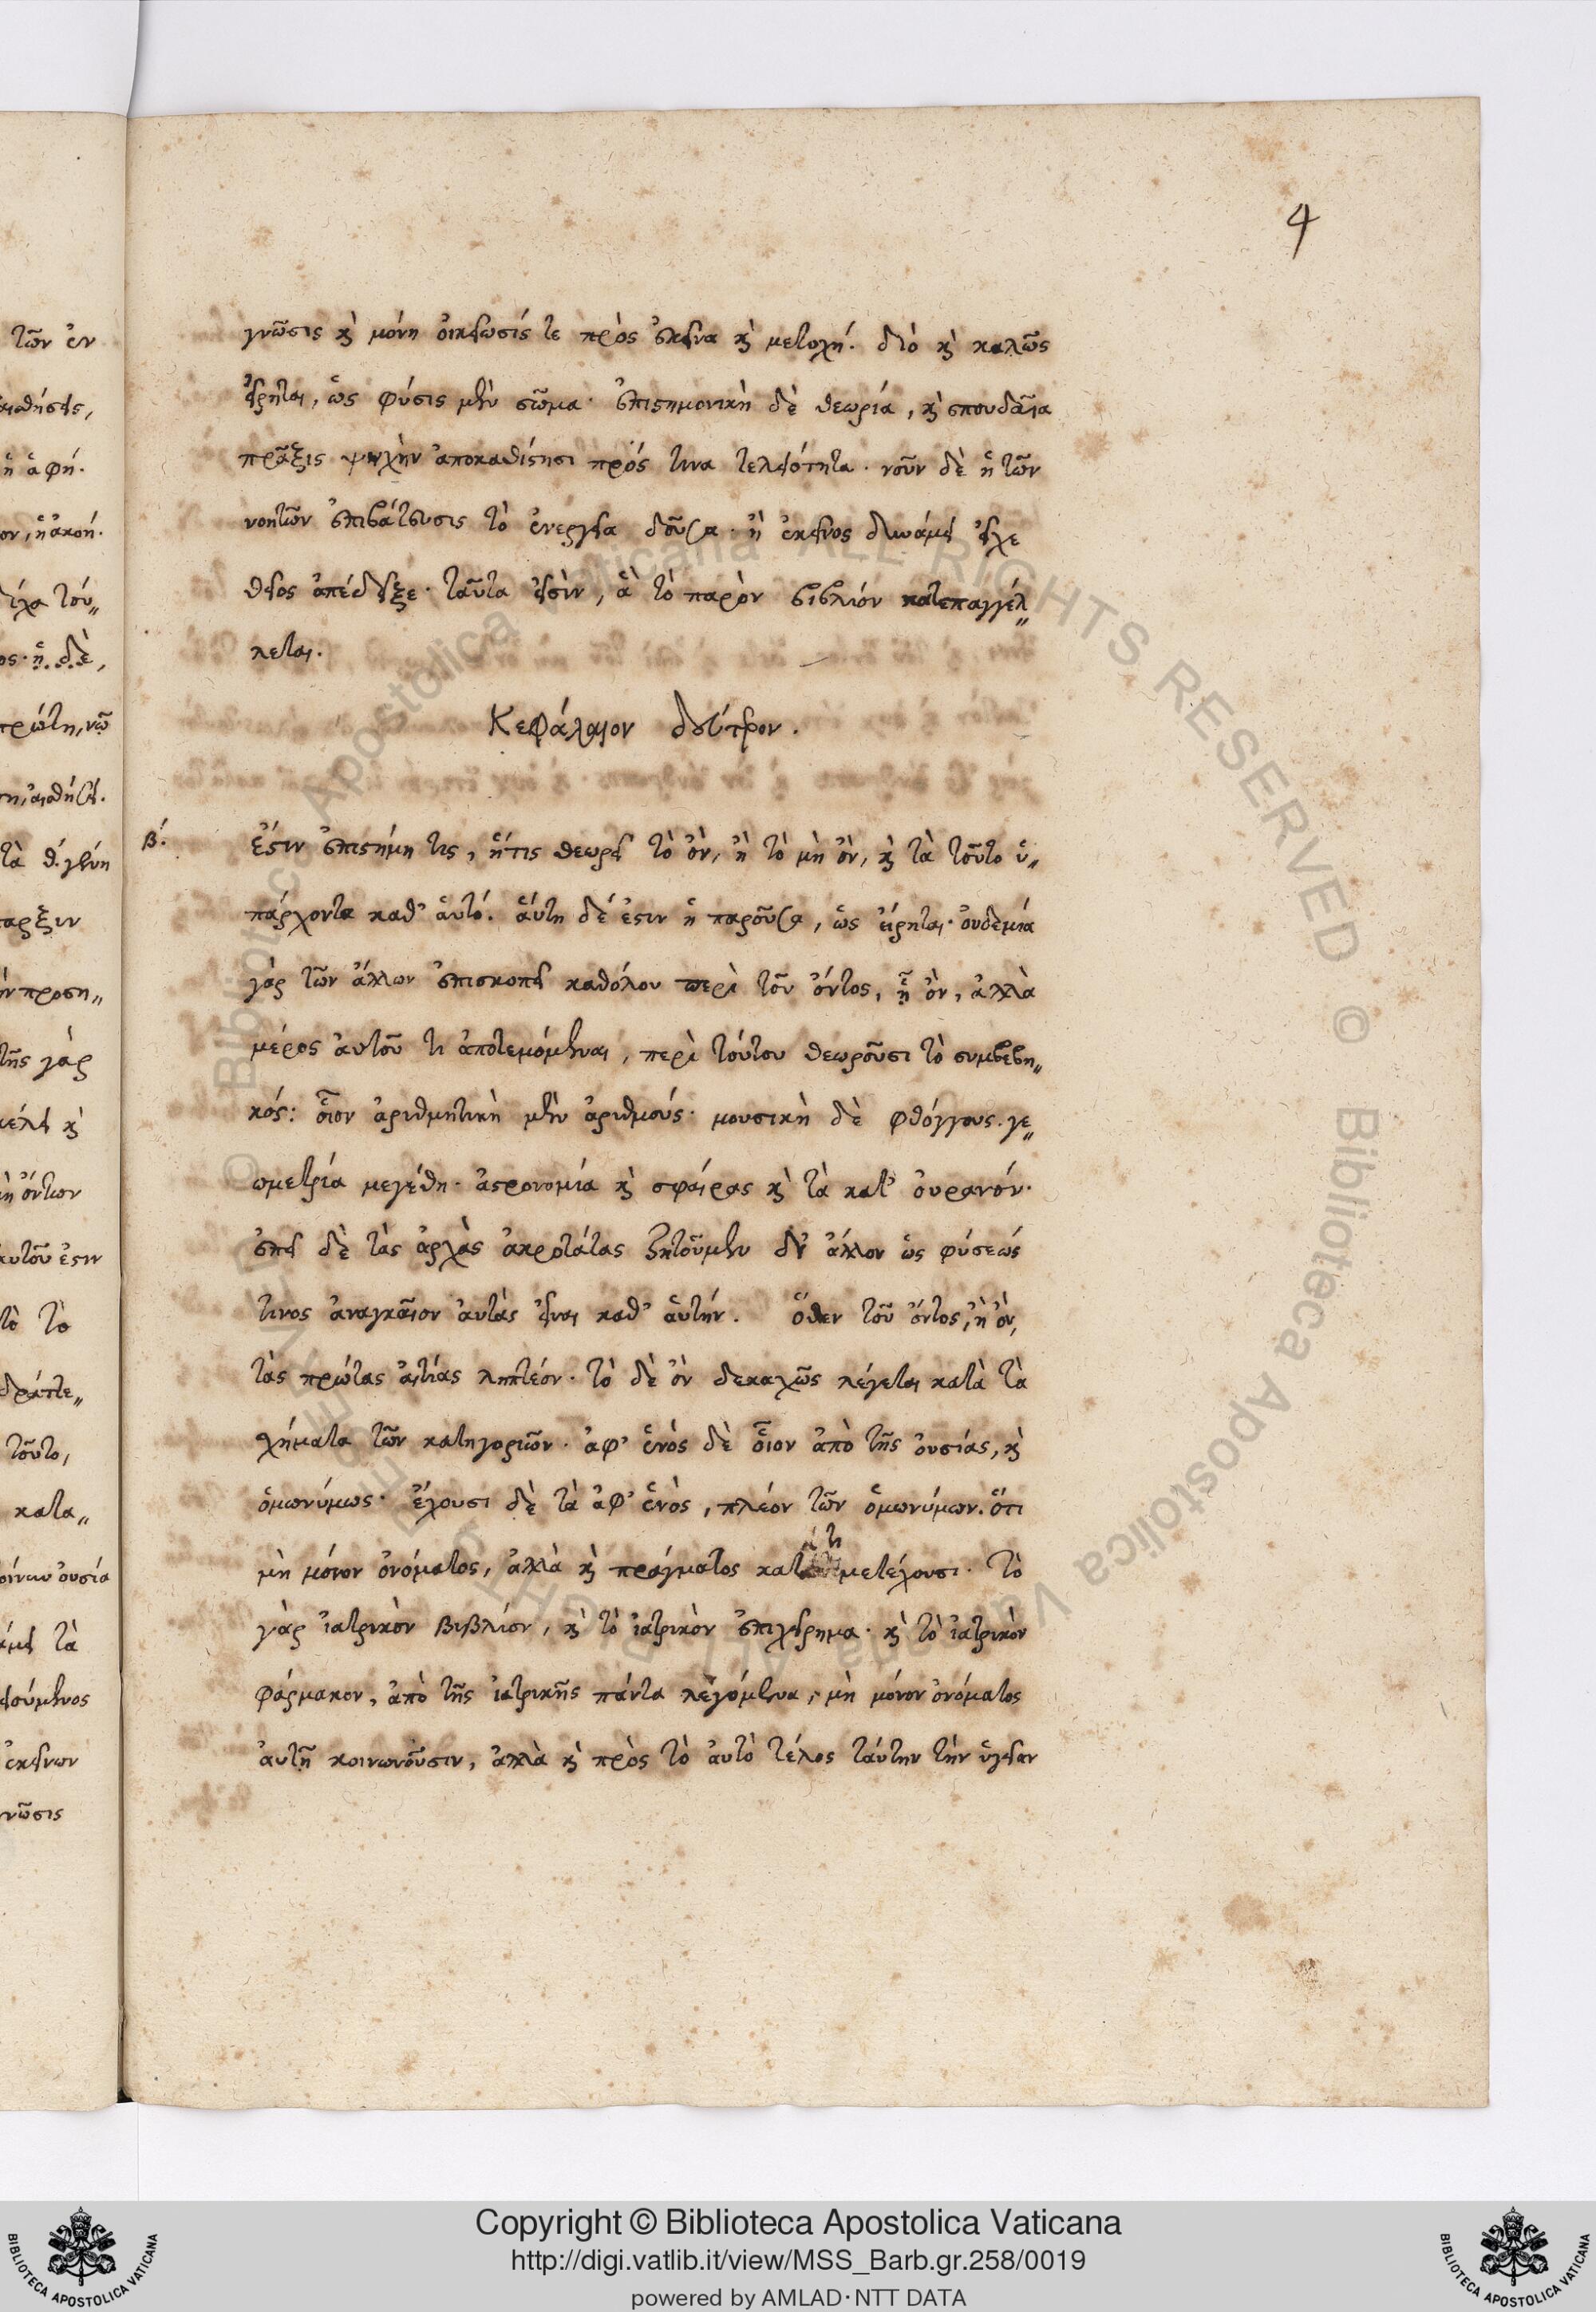 4
γνῶσις καὶ μόνη οἰκείωσίς τε πρὸς ἐκεῖνα καὶ μετοχή. διὸ καὶ καλῶς
εἴρηται, ὡς φύσις μὲν σῶμα· ἐπιστημονικὴ δὲ θεωρία, καὶ σπουδαῖα
πρᾶξις ψυχὴν ἀποκαθίστησι πρός τινα τελειότητα. νοῦν δὲ ἡ τῶν
νοητῶν ἐπιβάτευσις τὸ ἐνεργεία δοῦσα· ἢ ἐκεῖνος δυνάμει εἶχε
θεῖος ἀπέδειξε· ταῦτα εἰσὶν, ἃ τὸ παρὸν βιβλιόν κατεπαγγέλ„
λεται.
Κεφάλαιον δεύτερον.
β΄. ἔστιν ἐπιστήμη τις, ἥτις θεωρεῖ τὸ ὂν, ἢ τὸ μὴ ὂν, καὶ τὰ τοῦτο ὑ„
πάρχοντα καθ' αὑτό. αὕτη δέ ἐστιν ἡ παροῦσα, ὡς εἴρηται· οὐδεμία
γὰρ τῶν ἄλλων ἐπισκοπεῖ καθόλου περὶ τοῦ ὄντος, ᾗ ὂν, ἀλλὰ
μέρος αὐτοῦ τι ἀποτεμόμεναι, περὶ τούτου θεωροῦσι τὸ συμβεβη„
κός: οἷον ἀριθμητικὴ μὲν ἀριθμούς· μουσικὴ δὲ φθόγγους. γε„
ωμετρία μεγέθη· ἀστρονομία καὶ σφαίρας καὶ τὰ κατ' οὐρανόν.
ἐπεὶ δὲ τὰς ἀρχὰς ἀκροτάτας ζητοῦμεν δῆλον ὡς φύσεώς
τινος ἀναγκαῖον αὐτὰς εἶναι καθ' αὑτήν. ὅθεν τοῦ ὄντος, ἢ ὂν,
τὰς πρώτας αἰτίας ληπτέον. τὸ δὲ ὂν δεκαχῶς λέγεται κατὰ τὰ
σχήματα τῶν κατηγοριῶν. ἀφ' ἑνὸς δὲ οἷον ἀπὸ τῆς οὐσίας, καὶ
ὁμωνύμως. ἔχουσι δὲ τὰ ἀφ' ἑνὸς, πλέον τῶν ὁμωνύμων. ὅτι
μὴ μόνον ὀνόματος, ἀλλὰ καὶ πράγματος κατά τι μετέχουσι. τὸ
γὰρ ἰατρικὸν βιβλίον, καὶ τὸ ἰατρικὸν ἐπιχείρημα· καὶ τὸ ἰατρικὸν
φάρμακον, ἀπὸ τῆς ἰατρικῆς πάντα λεγόμενα, μὴ μόνον ὀνόματος
αὐτῇ κοινωνοῦσιν, ἀλλὰ καὶ πρὸς τὸ αὐτὸ τέλος ταύτην τὴν ὑγείαν
Copyright © Biblioteca Apostolica Vaticana
http://digi.vatlib.it/view/MSS_Barb.gr.258/0019
powered by AMLAD·NTT DATA